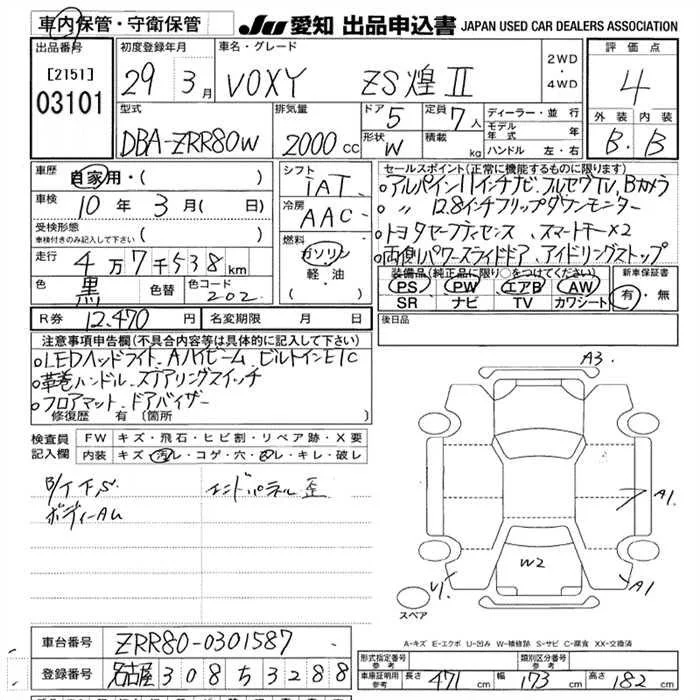 車内保管・守衛保管
JU 愛知 出品申込書 JAPAN USED CAR DEALERS ASSOCIATION
出品番号
[2151]
03101
初度登録年月
29 3月
車名・グレード
VOXY ZS煌Ⅱ
2WD
・
4WD
評価点
4
外装 内装
B・B
型式
DBA-ZRR80W
排気量
2000cc
ドア 5
形状 W
定員 7人
積載 kg
ディーラー・並行
モデル年式 年
ハンドル 左・右
車歴
自家用・( )
車検
10年 3月 (日)
受検形態
車検付きのみ記入して下さい ( )
走行
4万7千538km
色 黒
色替
色コード 202
シフト
IAT
冷房
AAC
燃料
ガソリン
軽・油
( )
セールスポイント(正常に機能するものに限ります)
・アルパイン11インチナビ、フルセグTV、Bカメラ
・〃 12.8インチフリップダウンモニター
・トヨタセーフティセンス、スマートキー×2
・両側パワースライドドア、アイドリングストップ
装備品(純正品に限り○をつけてください)
PS PW エアB AW
SR ナビ TV カワシート
新車保証書
有・無
R券 12,470円
名変期限 月 日
後日品
注意事項申告欄(不具合内容等は具体的に記入して下さい)
・LEDヘッドライト、Aハイビーム、ビルトインETC
・革巻ハンドル、ステアリングスイッチ
・フロアマット、ドアバイザー
修復歴 有〔箇所 〕
検査員記入欄
FW キズ・飛石・ヒビ割・リペア跡・X要
内装 キズ・汚レ・コゲ・穴・凹レ・キレ・破レ
B/T下S エンドパネル歪
ボディーAU
A3
A1
W2
U1
A1
スペア
A-キズ E-エクボ U-凹み W-補修跡 S-サビ C-腐食 XX-交換済
車台番号 ZRR80-0301587
登録番号 名古屋 308 ち 3288
形式指定番号 参考
類別区分番号 参考
車庫証明用 参考
長さ 471cm 幅 173cm 高さ 182cm